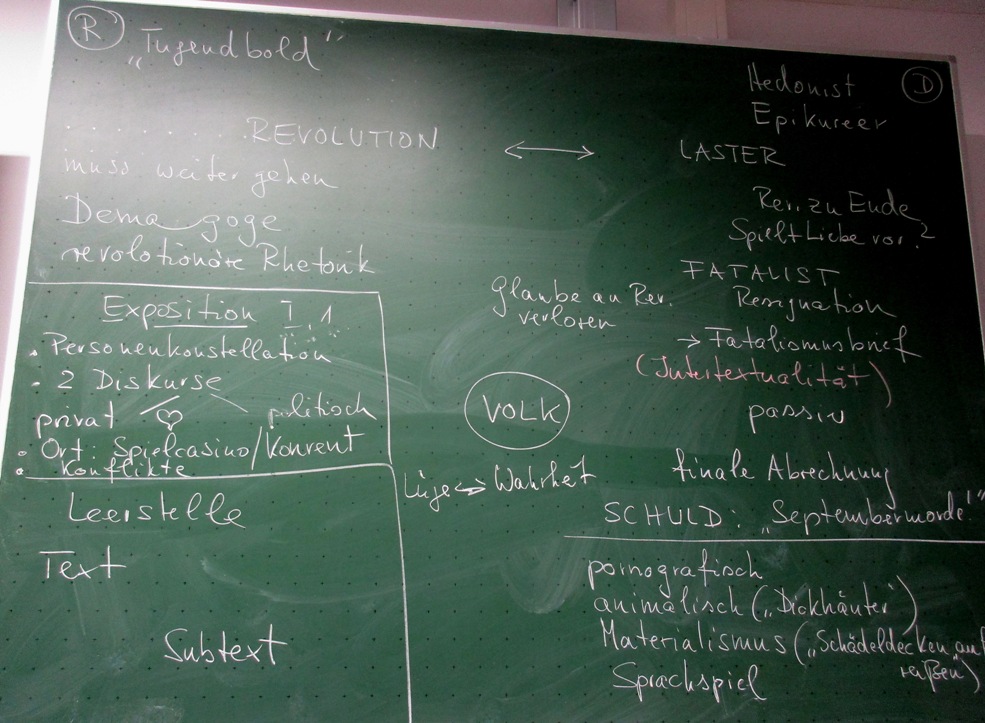 R
„Tugendbold"
REVOLUTION
muss weiter gehen
Demagoge
revolutionäre Rhetorik
Exposition I,1
• Personenkonstellation
• 2 Diskurse
privat ♡ politisch
• Ort: Spielcasino/Konvent
• Konflikte
Leerstelle
Text
Subtext
↔
Glaube an Rev.
verloren
VOLK
Lüge ↔ Wahrheit
D
Hedonist
Epikureer
LASTER
Rev. zu Ende
Spielt Liebe vor?
FATALIST
Resignation
→ Fatalismusbrief
(Intertextualität)
passiv
finale Abrechnung
SCHULD: „Septembermorde!"
pornografisch
animalisch („Dickhäuter")
Materialismus („Schädeldecken auf
reißen")
Sprachspiel